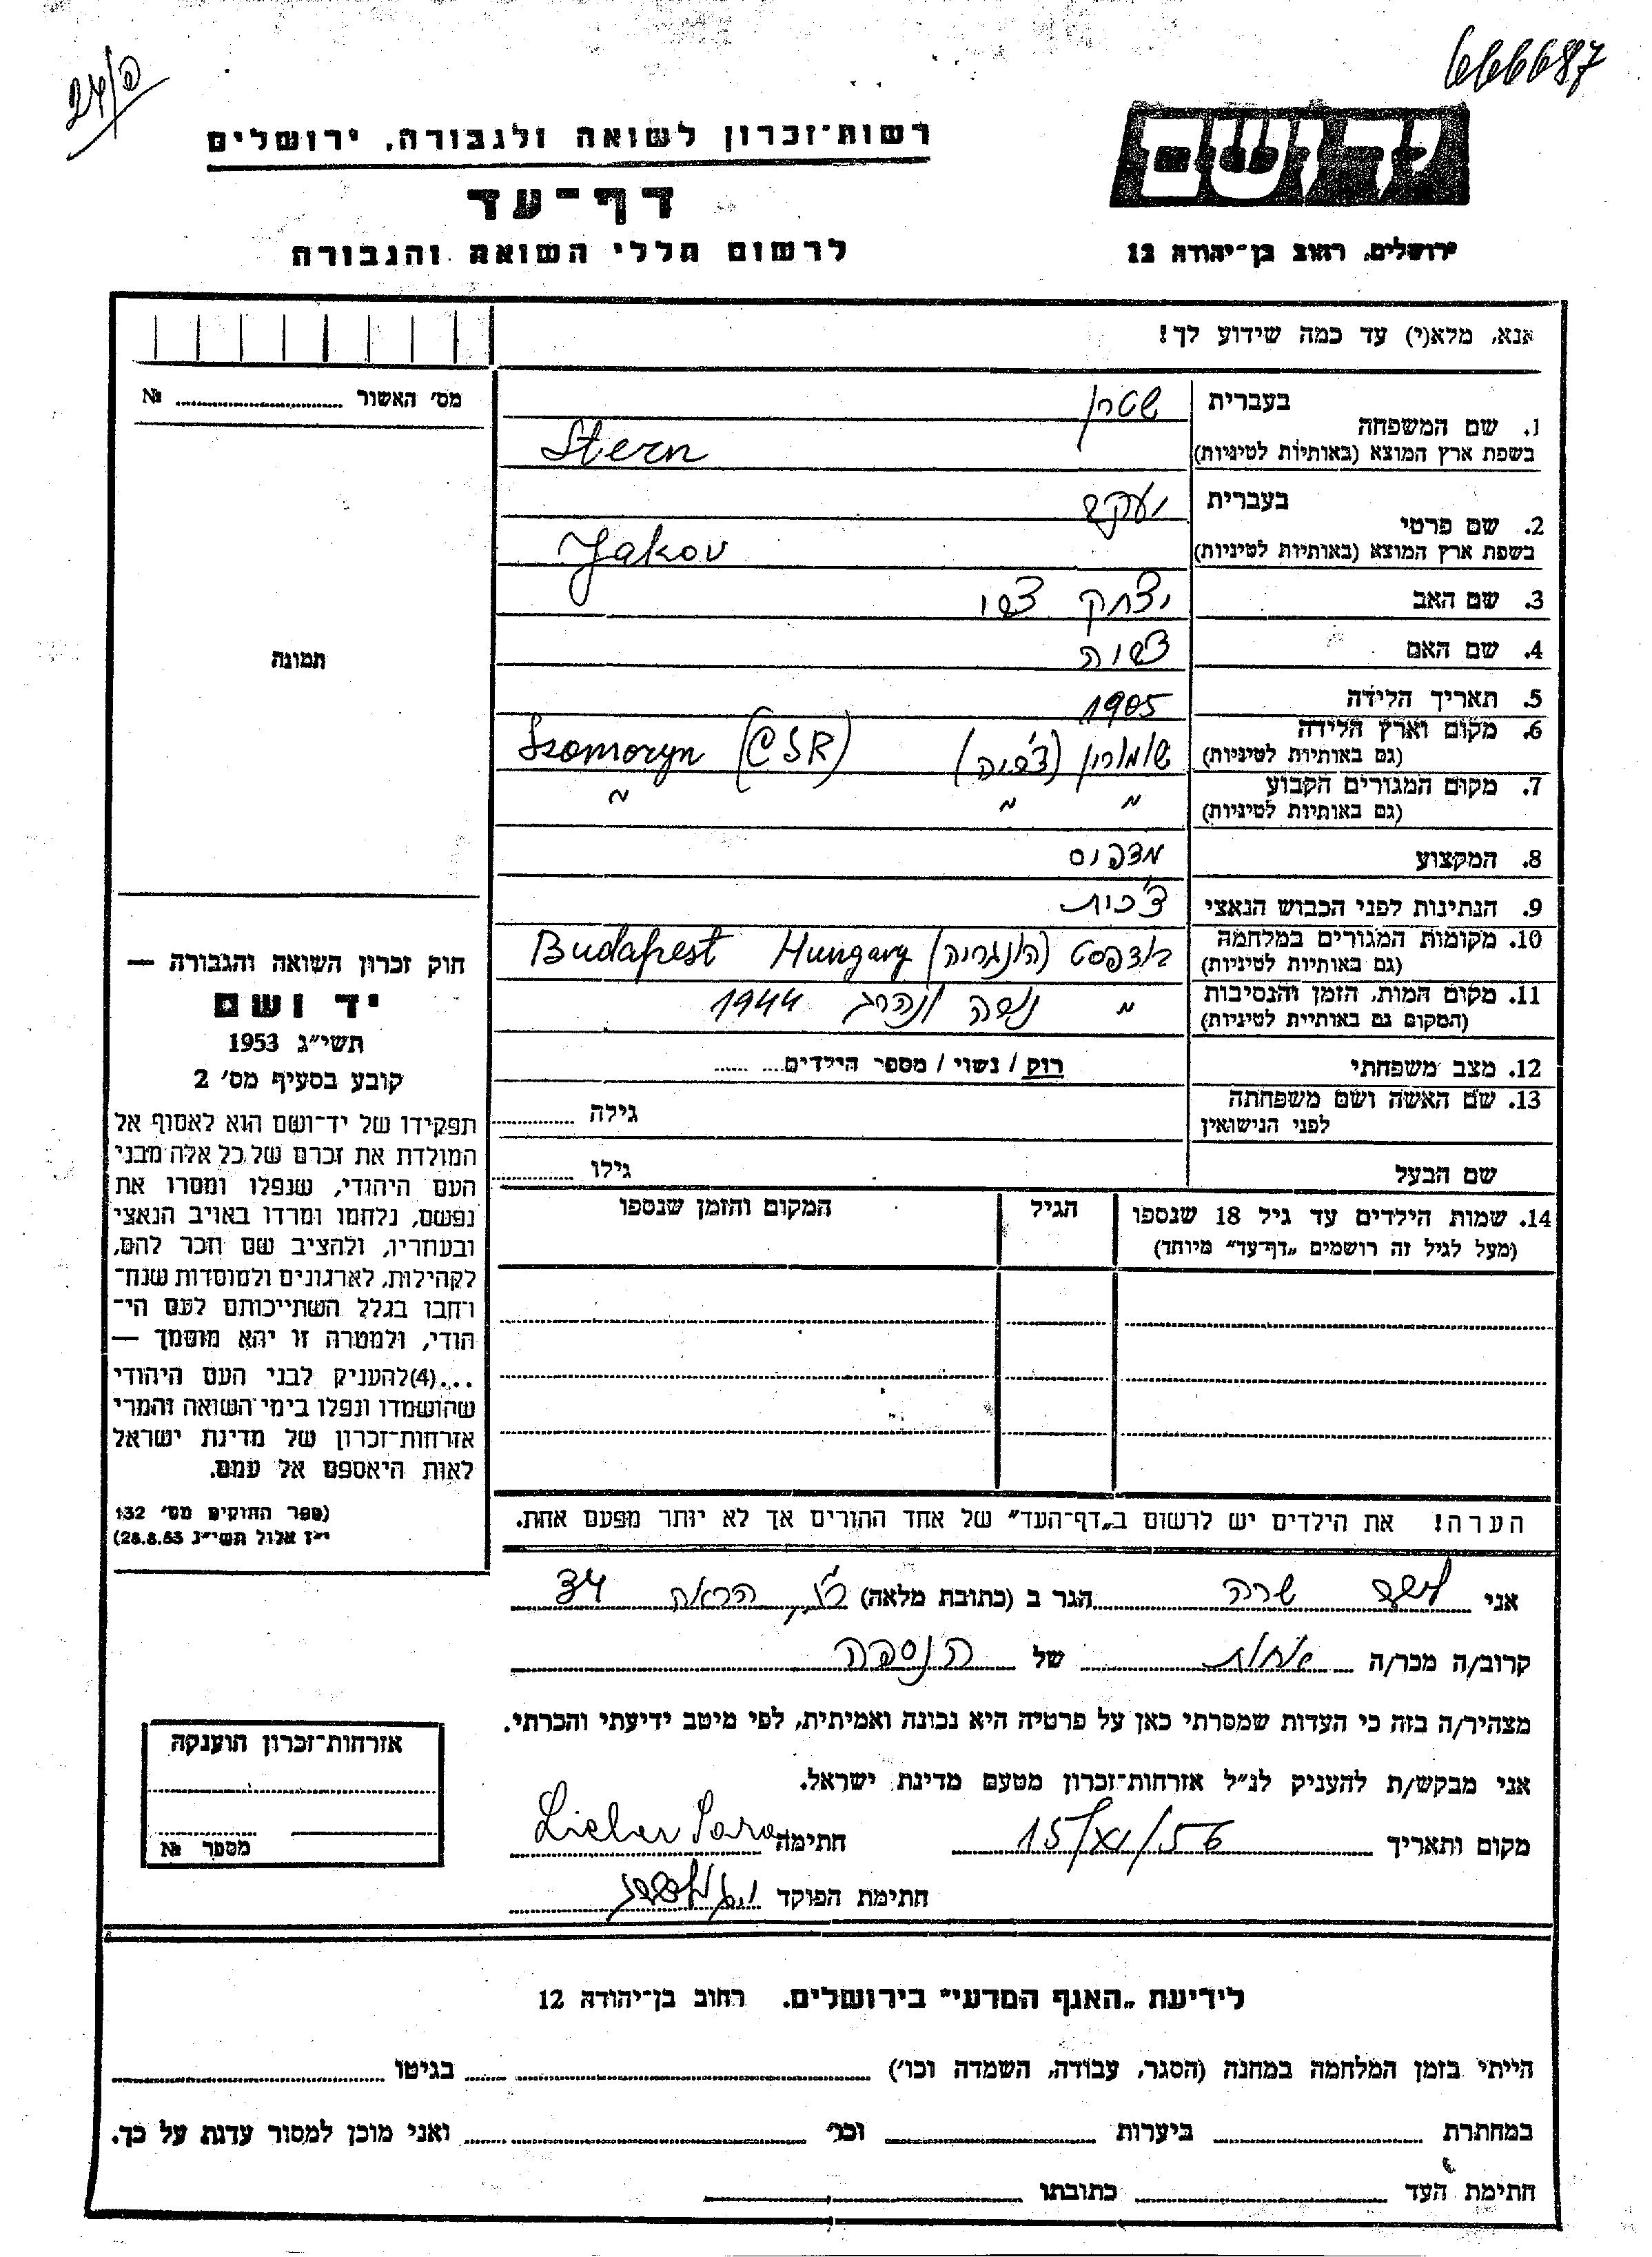 666687
24/
יד ושם
רשות־זכרון לשואה ולגבורה, ירושלים
דף־עד
ירושלים, רחוב בן־יהודה 12
לרשום חללי השואה והגבורה
אנא, מלא(י) עד כמה שידוע לך!
מס' האשור № 
1. שם המשפחה
בעברית שטרן
בשפת ארץ המוצא (באותיות לטיניות) Stern
2. שם פרטי
בעברית יעקב
בשפת ארץ המוצא (באותיות לטיניות) Jakov
3. שם האב יצחק צבי
4. שם האם
תמונה
5. תאריך הלידה 1905
6. מקום וארץ הלידה
(גם באותיות לטיניות) Szomoryn (CSR)
7. מקום המגורים הקבוע " " "
(גם באותיות לטיניות)
8. המקצוע מדפיס
9. הנתינות לפני הכבוש הנאצי צ'כית
10. מקומות המגורים במלחמה בודפסט (הונגריה) Budapest Hungary
(גם באותיות לטיניות)
11. מקום המות, הזמן והנסיבות " ונהרג 1944
(המקום גם באותיות לטיניות)
12. מצב משפחתי רוק / נשוי / מספר הילדים
13. שם האשה ושם משפחתה גילה
לפני הנישואין
שם הבעל גילו
14. שמות הילדים עד גיל 18 שנספו הגיל המקום והזמן שנספו
(מעל לגיל זה רושמים „דף־עד" מיוחד)
חוק זכרון השואה והגבורה —
יד ושם
תשי"ג 1953
קובע בסעיף מס' 2
תפקידו של יד־ושם הוא לאסוף אל
המולדת את זכרם של כל אלה מבני
העם היהודי, שנפלו ומסרו את
נפשם, נלחמו ומרדו באויב הנאצי
ובעוזריו, ולהציב שם וזכר להם,
לקהילות, לארגונים ולמוסדות שנח־
רבו בגלל השתייכותם לעם הי־
הודי, ולמטרה זו יהא מוסמך —
...(4)להעניק לבני העם היהודי
שהושמדו ונפלו בימי השואה והמרי
אזרחות־זכרון של מדינת ישראל
לאות היאספם אל עמם.
(ספר החוקים מס' 132
י"ז אלול תשי"ג 28.8.53)
הערה! את הילדים יש לרשום ב„דף־העד" של אחד ההורים אך לא יותר מפעם אחת.
אני שרה הגר ב (כתובת מלאה)
קרוב/ה מכר/ה אחות של הנספה
מצהיר/ה בזה כי העדות שמסרתי כאן על פרטיה היא נכונה ואמיתית, לפי מיטב ידיעתי והכרתי.
אני מבקש/ת להעניק לנ"ל אזרחות־זכרון מטעם מדינת ישראל.
מקום ותאריך 15/XI/56 חתימה Lieber Sara
חתימת הפוקד
אזרחות־זכרון הוענקה
מספר №
לידיעת „האגף המדעי" בירושלים. רחוב בן־יהודה 12
הייתי בזמן המלחמה במחנה (הסגר, עבודה, השמדה וכו') בגיטו
במחתרת ביערות וכו' ואני מוכן למסור עדות על כך.
חתימת העד כתובתו